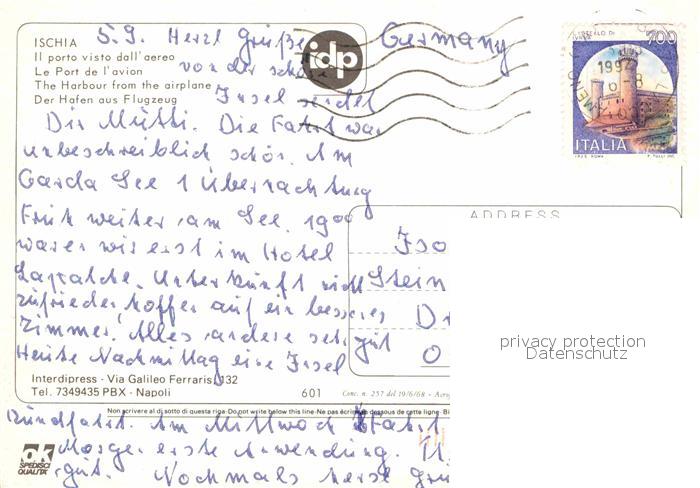 5.9. Herzl Grüße Germany
von der schöne
Insel sendet
Dir Mutti. Die Fahrt war
unbeschreiblich schön. Am
Garda See 1 Übernachtung
Früh weiter, am See. 19⁰⁰
waren wir erst im Hotel
Unterkunft nicht
zufrieden, hoffen auf ein besseres
Zimmer, Alles andere sehr gut
Heute Nachmittag eine Insel
Rundfahrt. Am Mittwoch Fahrt
Morgen erste Anwendung.
gut. Nochmals herzl Grü
ISCHIA
Il porto visto dall'aereo
Le Port de l'avion
The Harbour from the airplane
Der Hafen aus Flugzeug
idp
1992
700
ITALIA
I.P.Z.S. ROMA
ADDRESS
Stein
D
O
privacy protection
Datenschutz
Interdipress - Via Galileo Ferraris, 132
Tel. 7349435 PBX - Napoli
601
Conc. n. 257 del 19/6/68 - Aero
Non scrivere al di sotto di questa riga-Do not write below this line-Ne pas écrire au dessous de cette ligne- Bi
ok
SPEDISCI
QUALITA'